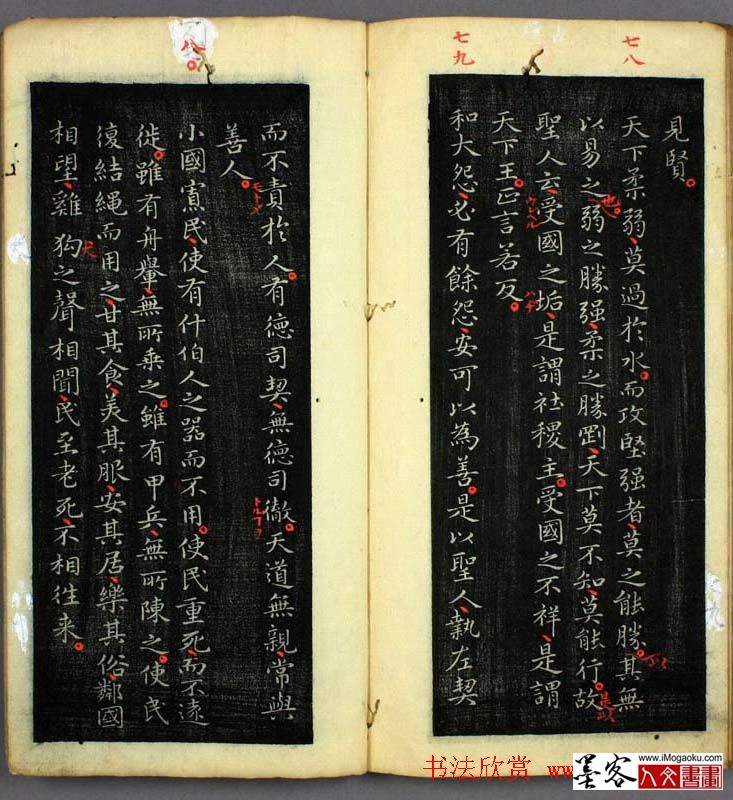 七八
七九
見賢。
天下柔弱莫過於水。而攻堅强者莫之能勝。其無
以易之。弱之勝强柔之勝剛天下莫不知莫能行。故
也。
是以
聖人云受國之垢是謂社稷主。受國之不祥是謂
ハヂ
天下王。正言若反。
和大怨必有餘怨安可以為善。是以聖人執左契
八。
而不責於人。有德司契無德司徹。天道無親常與
モトメ
善人。
小國寡民使有什伯人之器而不用。使民重死而不遠
徙。雖有舟轝無所乘之。雖有甲兵無所陳之。使民
復結繩而用之。甘其食美其服安其居樂其俗鄰國
相望雞狗之聲相聞民至老死不相往来。
犬
书法欣赏 ww
墨客
www.iMogaoku.com
人文書畫